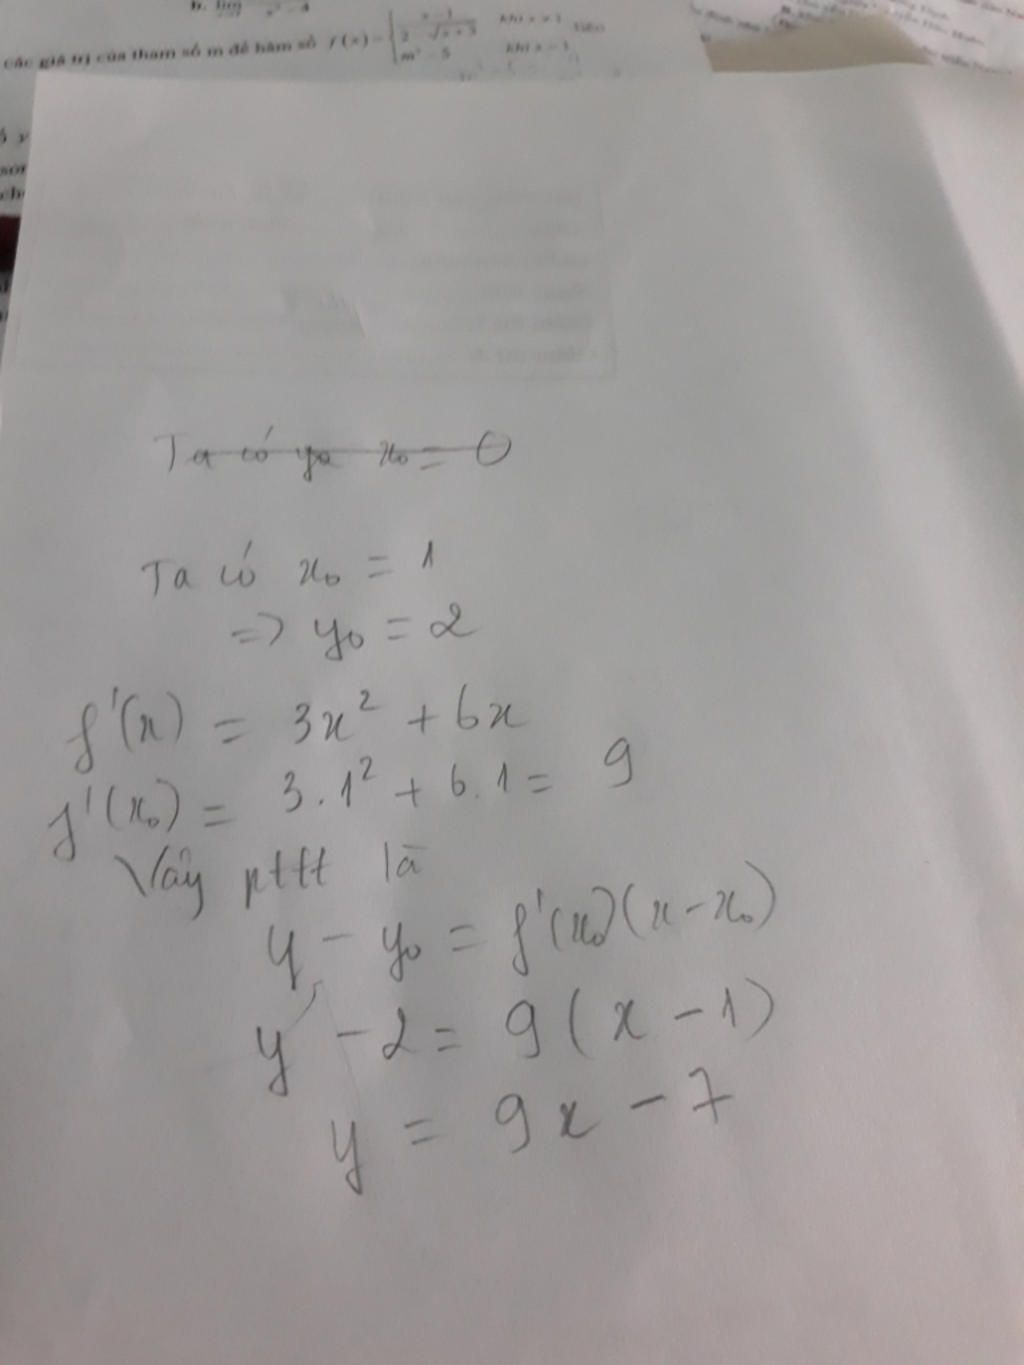 b. lim
các giá trị của tham số m để hàm số f(x) = { x - 1 / 2 - √x + 3 khi x ≠ 1 liên
m² - 5 khi x = 1
Ta có yo x₀ = 0
Ta có x₀ = 1
=> y₀ = 2
f'(x) = 3x² + 6x
f'(x₀) = 3.1² + 6.1 = 9
Vậy pttt là
y - y₀ = f'(x₀)(x - x₀)
y - 2 = 9(x - 1)
y = 9x - 7